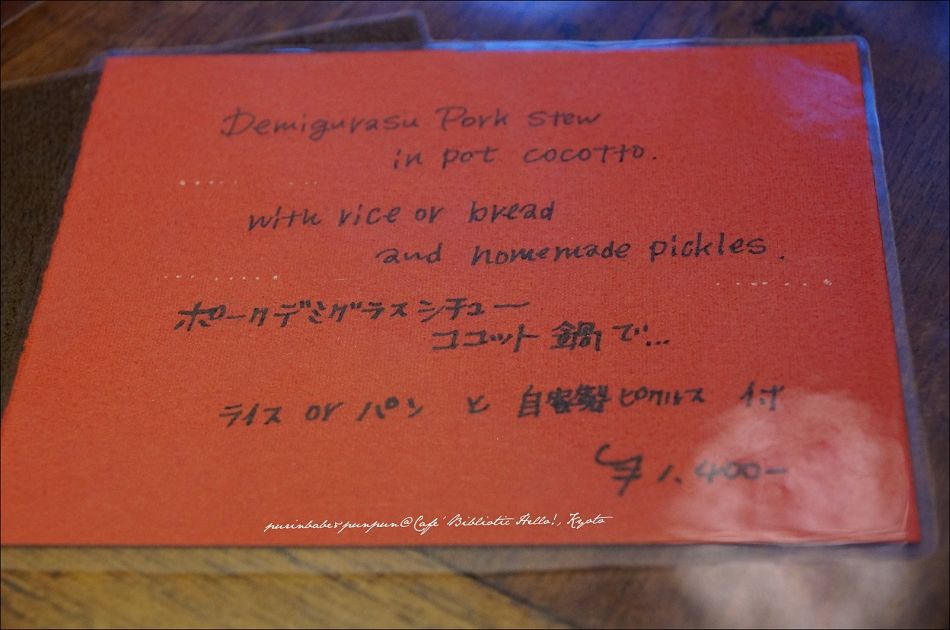 Demigurasu Pork stew
in pot cocotto.
with rice or bread
and homemade pickles.
ポークデミグラスシチュー
ココット鍋で...
ライス or パン と 自家製ピクルス 付
¥1.400-
purinbabe&punpun@Cafe' Bibliotic Hello!, Kyoto